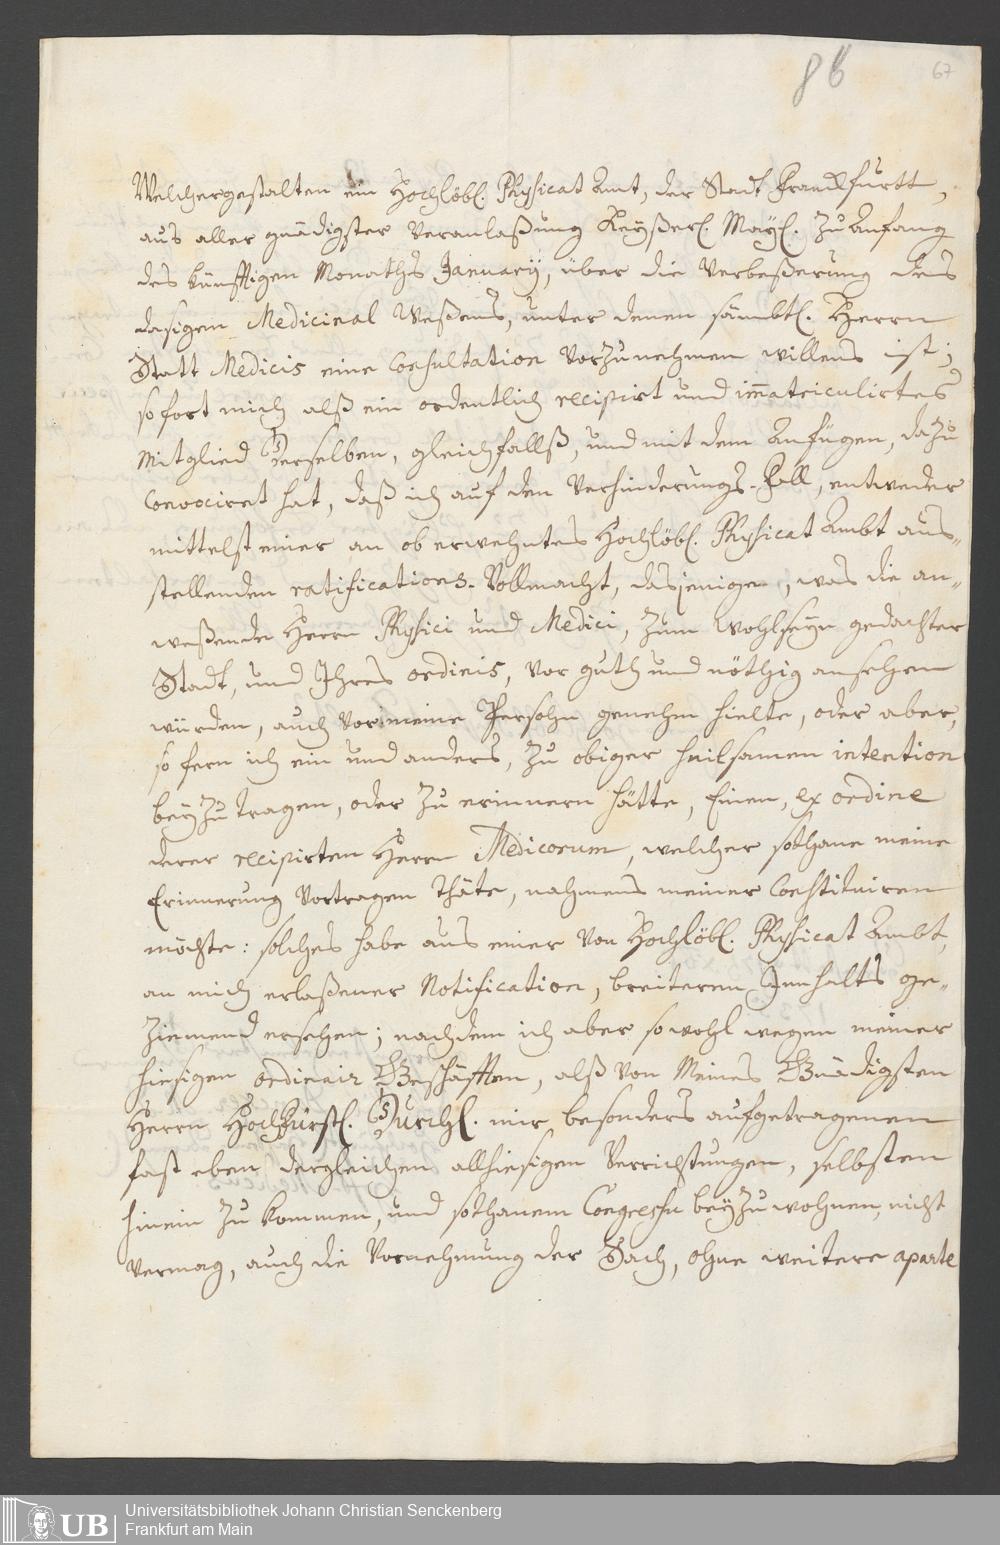 86
67
Welchergestalten ein Hochlöbl. Physicat Amt, der Stadt Franckfurtt,
aus aller gnädigster Veranlaßung Keyßerl. Mayl. zu Anfang
des künfftigen Monaths January, über die Verbeßerung des
dasigen Medicinal Weßens, unter denen sämbtl. Herrn
Statt Medicis eine Consultation vorzunehmen willens ist;
sofort mich alß ein ordentlich recipirt und immatriculirtes
Mitglied Derselben, gleichfallß, und mit dem Anfügen, dazu
convociret hat, daß ich auf den Verhinderungs-Fall, entweder
mittelst einer an ob erwehntes Hochlöbl. Physicat Ambt aus-
stellenden ratifications-Vollmacht, dasjenige, was die an-
weßende Herrn Physici und Medici, zum Wohlseyn gedachter
Stadt, und Ihres ordinis, vor guth und nöthig ansehen
würden, auch vor meine Persohn genehm hielte, oder aber,
so fern ich ein und anders, zu obiger heilsamen intention
beyzutragen, oder zu erinnern hätte, Einen, ex ordine
derer recipirten Herrn Medicorum, welcher sothane meine
Erinnerung vortragen thäte, nahmens meiner Constituiren
möchte: solches habe aus einer von Hochlöbl. Physicat Ambt,
an mich erlaßener Notification, breiteren Innhalts ge-
ziemend ersehen; nachdem ich aber sowohl wegen meiner
hiesigen ordinair Geschäfften, alß von Meines Gnädigsten
Herrn Hochfürstl. Durchl. mir besonders aufgetragenen
fast eben dergleichen allhiesigen Verrichtungen, selbsten
hinein zu kommen, und sothanem Congressu beyzuwohnen, nicht
vermag, auch die Vornehmung der Sach, ohne weitere aparte
UB
Universitätsbibliothek Johann Christian Senckenberg
Frankfurt am Main